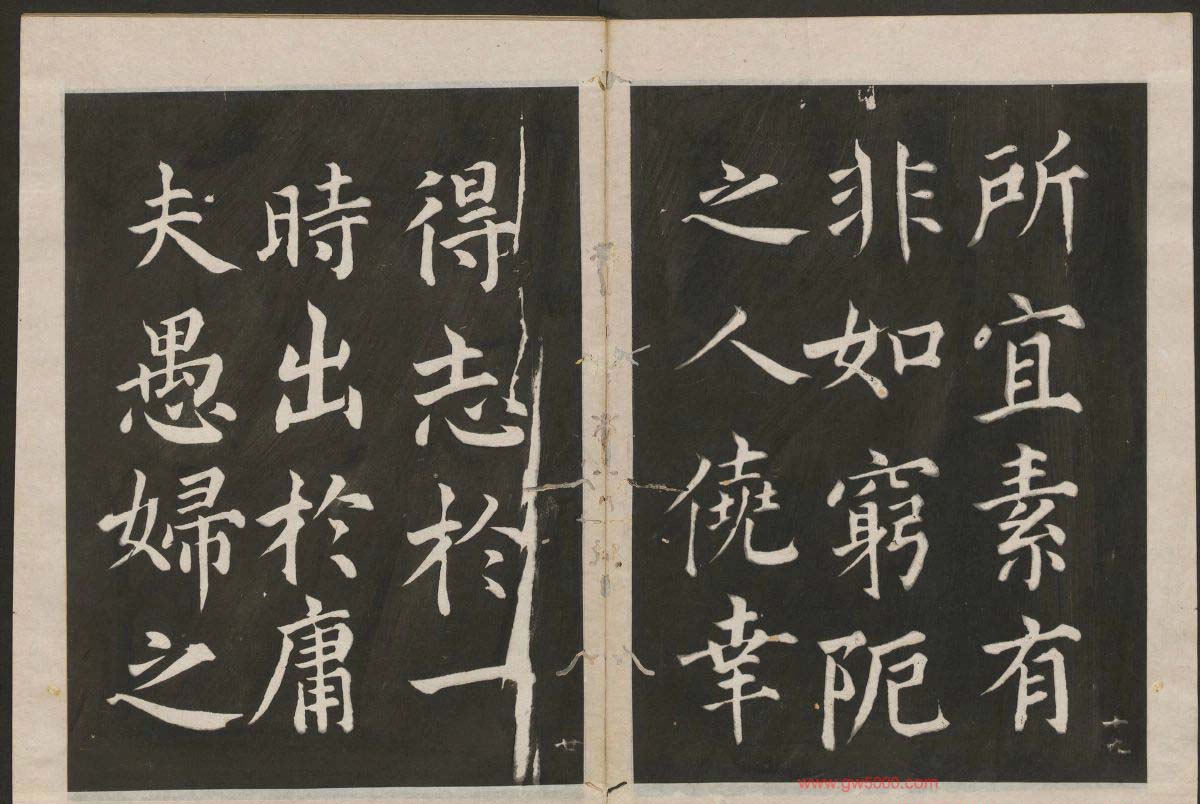 所宜素有
非如窮阨
之人僥幸
十九
得志於一
時出於庸
夫愚婦之
廿
www.gw5000.com